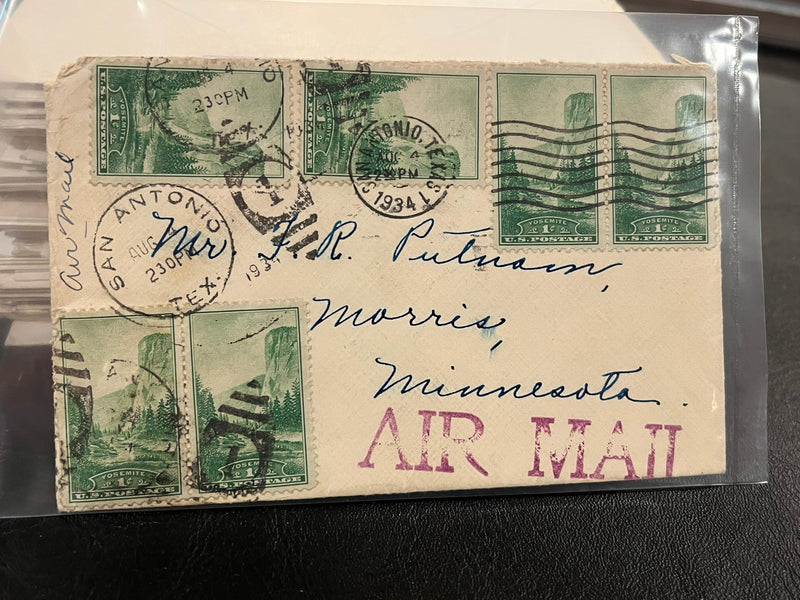 Air Mail
4
230PM
TEX.
SAN ANTONIO, TEXAS
AUG 4
PM
1934
1
SAN ANTONIO
AUG
230PM
TEX.
193
YOSEMITE
1¢
U.S. POSTAGE
YOSEMITE
1¢
U.S. POSTAGE
Mr. F. R. Putnam,
Morris,
Minnesota.
YOSEMITE
1¢
U.S. POSTAGE
YOSEMITE
1¢
U.S. POSTAGE
AIR MAIL